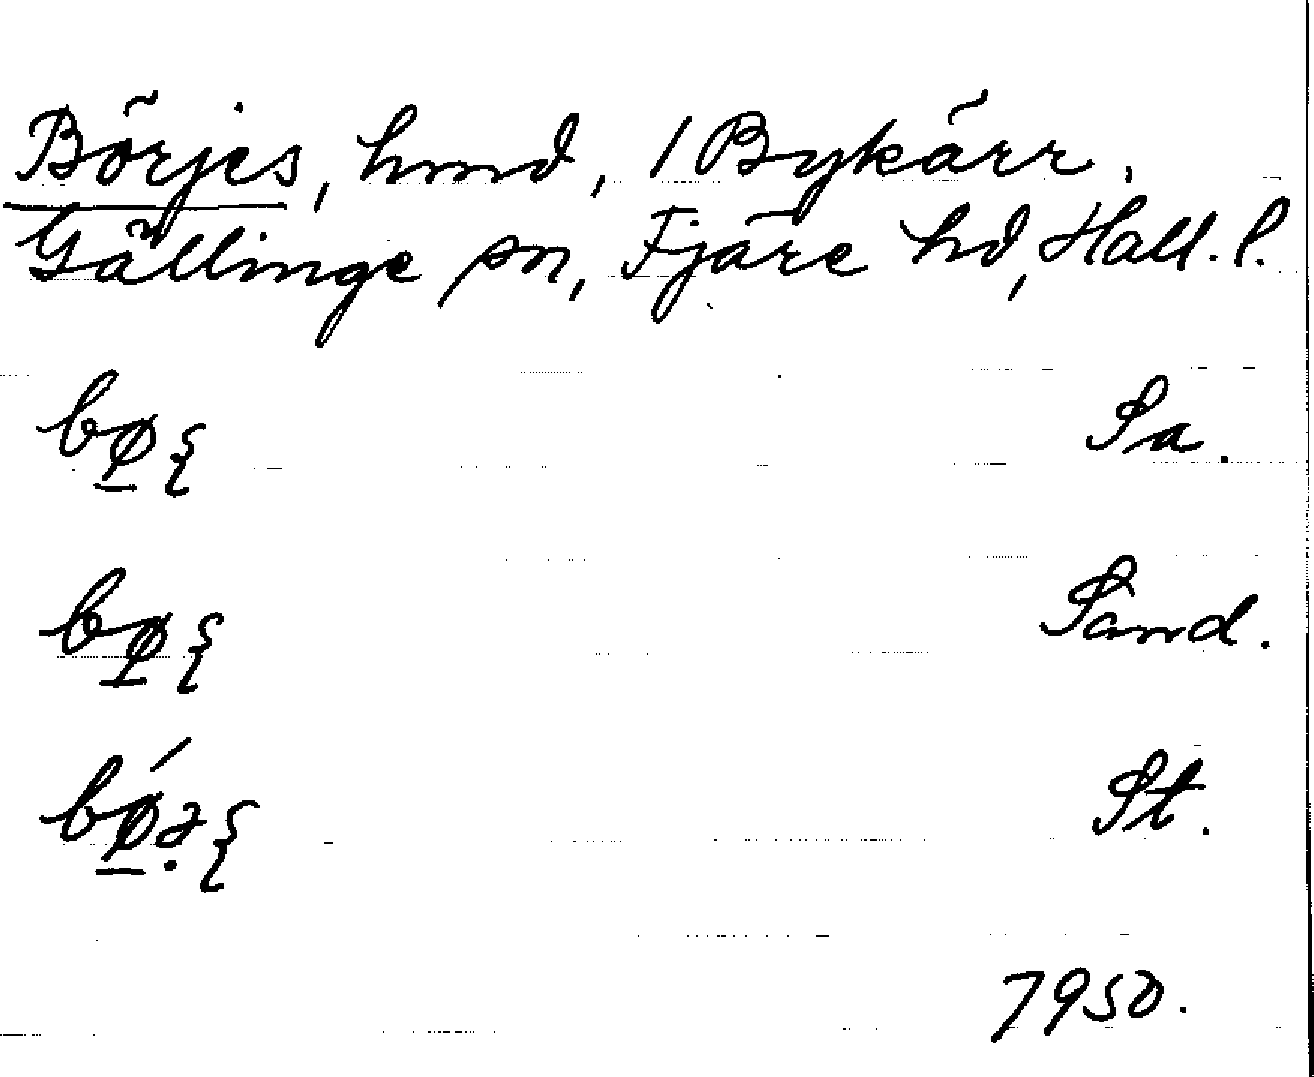 Börjes, hmd, 1 Bykärr,
Gällinge sn, Fjäre hd, Hall. l.
bø̱{ Sa.
bø̱{ Sand.
bǿ̱ə̣{ St.
7950.